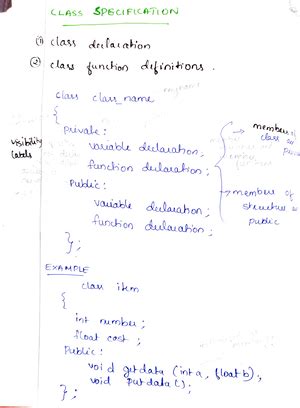 CLASS SPECIFICATION
(1) class declaration
(2) class function definitions.
class class_name
{
private:
variable declaration;
function declaration;
Public:
variable declaration;
function declaration;
};
visibility
labels
members
class
→ members of
structure
public
EXAMPLE
class item
{
int number;
float cost;
Public:
void getdata (int a, float b);
void putdata();
};